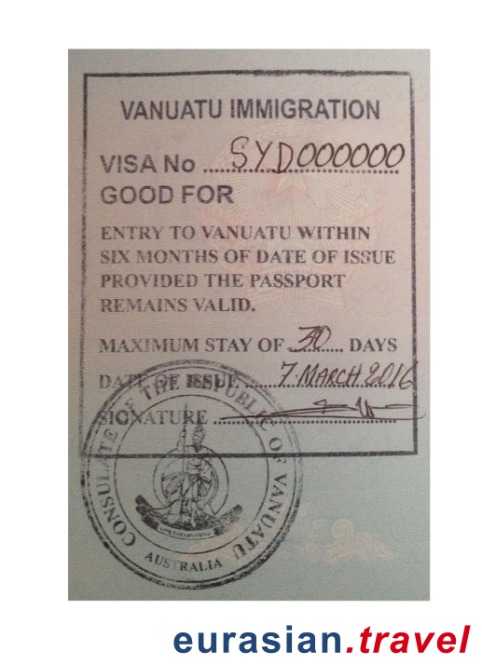 VANUATU IMMIGRATION
VISA No ....SYD000000
GOOD FOR
ENTRY TO VANUATU WITHIN
SIX MONTHS OF DATE OF ISSUE
PROVIDED THE PASSPORT
REMAINS VALID.
MAXIMUM STAY OF 30 DAYS
DATE OF ISSUE ..... 7. MARCH 2016
SIGNATURE
CONSULATE OF THE REPUBLIC OF VANUATU
AUSTRALIA
eurasian.travel